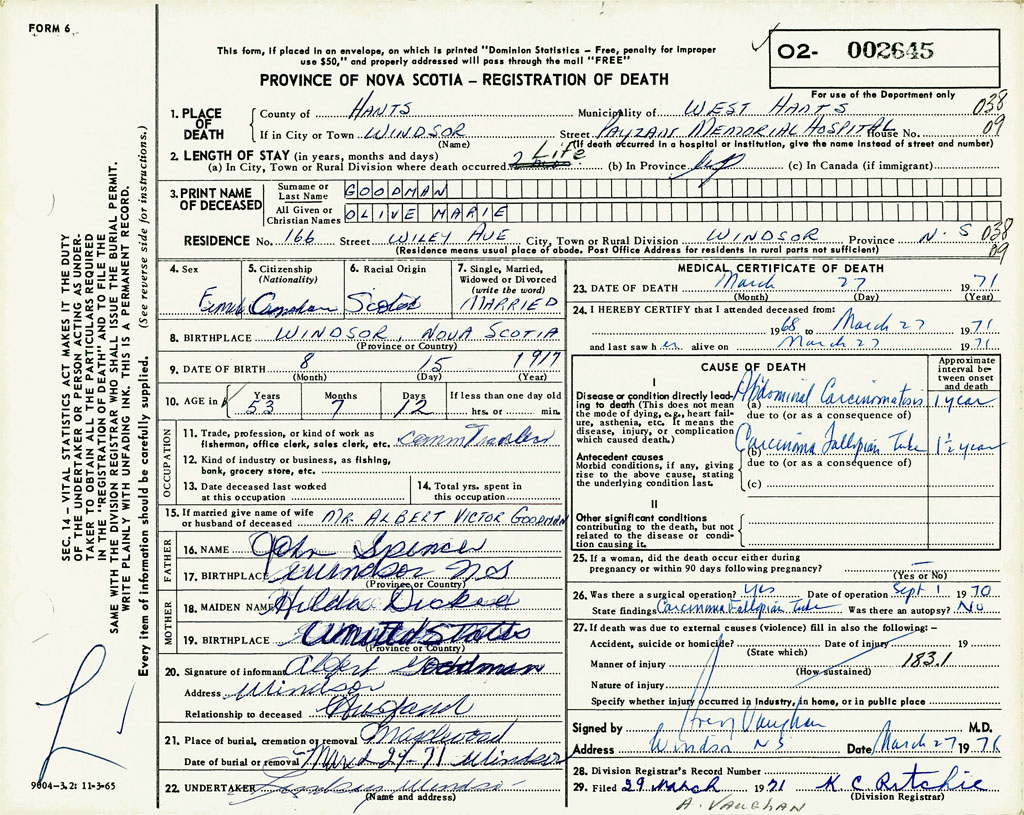 FORM 6
This form, if placed in an envelope, on which is printed "Dominion Statistics – Free, penalty for improper
use $50," and properly addressed will pass through the mail "FREE"
02- 002645
PROVINCE OF NOVA SCOTIA – REGISTRATION OF DEATH
For use of the Department only
1. PLACE OF DEATH
County of HANTS Municipality of WEST HANTS 038
If in City or Town WINDSOR Street PAYZANT MEMORIAL HOSPITAL House No. 09
(Name) (If death occurred in a hospital or institution, give the name instead of street and number)
2. LENGTH OF STAY (in years, months and days)
(a) In City, Town or Rural Division where death occurred Life (b) In Province (c) In Canada (if immigrant)
3. PRINT NAME OF DECEASED
Surname or Last Name GOODMAN
All Given or Christian Names OLIVE MARIE
RESIDENCE No. 166 Street WILEY AVE City, Town or Rural Division WINDSOR Province N.S 038
(Residence means usual place of abode. Post Office Address for residents in rural parts not sufficient) 09
4. Sex
5. Citizenship (Nationality) Canadian
6. Racial Origin Scotch
7. Single, Married, Widowed or Divorced (write the word) MARRIED
8. BIRTHPLACE WINDSOR, NOVA SCOTIA
(Province or Country)
9. DATE OF BIRTH 8 15 1917
(Month) (Day) (Year)
10. AGE in Years Months Days If less than one day old
53 7 12 hrs. or min.
OCCUPATION
11. Trade, profession, or kind of work as
fisherman, office clerk, sales clerk, etc.
12. Kind of industry or business, as fishing,
bank, grocery store, etc.
13. Date deceased last worked
at this occupation
14. Total yrs. spent in
this occupation
15. If married give name of wife
or husband of deceased MR. ALBERT VICTOR GOODMAN
FATHER
16. NAME John Spencer
17. BIRTHPLACE Windsor NS
(Province or Country)
MOTHER
18. MAIDEN NAME Hilda
19. BIRTHPLACE United States
(Province or Country)
20. Signature of informant Albert Goodman
Address Windsor
Relationship to deceased Husband
21. Place of burial, cremation or removal Maplewood
Date of burial or removal 29-71 Windsor
22. UNDERTAKER Lindsay Windsor
(Name and address)
MEDICAL CERTIFICATE OF DEATH
23. DATE OF DEATH March 27 1971
(Month) (Day) (Year)
24. I HEREBY CERTIFY that I attended deceased from:
1968 to March 27 1971
and last saw her alive on March 27 1971
CAUSE OF DEATH
Approximate interval between onset and death
I
Disease or condition directly leading
to death (This does not mean
the mode of dying, e.g., heart failure,
asthenia, etc. It means the
disease, injury, or complication
which caused death.)
(a) Abdominal Carcinomatosis 1 year
due to (or as a consequence of)
Antecedent causes
Morbid conditions, if any, giving
rise to the above cause, stating
the underlying condition last.
(b) Carcinoma Fallopian Tube 1½ year
due to (or as a consequence of)
(c)
II
Other significant conditions
contributing to the death, but not
related to the disease or condition
causing it.
25. If a woman, did the death occur either during
pregnancy or within 90 days following pregnancy? –
(Yes or No)
26. Was there a surgical operation? Yes Date of operation Sept 1 1970
State findings Carcinoma Fallopian Tube Was there an autopsy? No
27. If death was due to external causes (violence) fill in also the following: –
Accident, suicide or homicide? Date of injury 19
(State which)
Manner of injury 183.1
(How sustained)
Nature of injury
Specify whether injury occurred in industry, in home, or in public place
Signed by Vaughan M.D.
Address Windsor NS Date March 27 1971
28. Division Registrar's Record Number
29. Filed 29 March 1971 K C Ritchie
(Division Registrar)
A. VAUGHAN
SEC. 14 – VITAL STATISTICS ACT MAKES IT THE DUTY
OF THE UNDERTAKER OR PERSON ACTING AS UNDER-
TAKER TO OBTAIN ALL THE PARTICULARS REQUIRED
IN THE "REGISTRATION OF DEATH" AND TO FILE THE
SAME WITH THE DIVISION REGISTRAR WHO SHALL ISSUE THE BURIAL PERMIT.
WRITE PLAINLY WITH UNFADING INK. THIS IS A PERMANENT RECORD.
Every item of information should be carefully supplied. (See reverse side for instructions.)
9004-3.2: 11-3-65